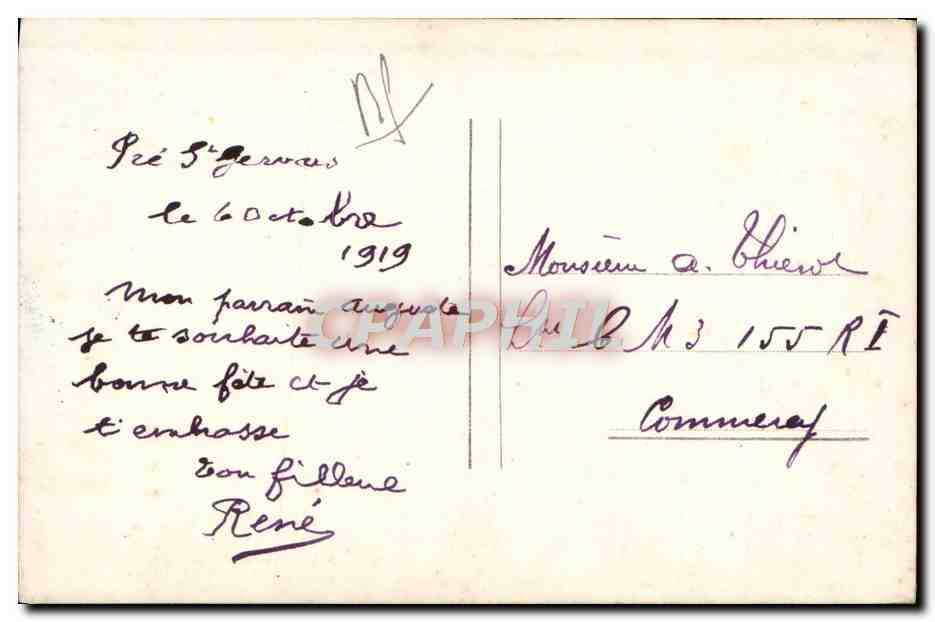 Pré St Gervais
le 6 Octobre
1919
Mon parrain auguste
je te souhaite une
bonne fête et je
t'embrasse
ton filleue
René
Monsieur A. Thierot
C M 3 155 R I
Commercy
CPAPHIL